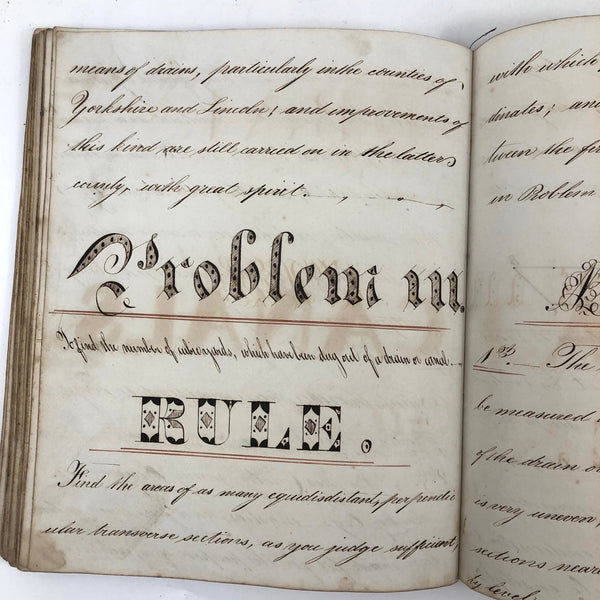 means of drains, particularly in the counties of
Yorkshire and Lincoln; and improvements of
this kind are still carried on in the latter
county, with great spirit.
Problem III.
To find the number of cubic yards, which have been dug out of a drain or canal.
RULE.
Find the areas of as many equidisdistant, perpendic
ular transverse sections, as you judge sufficient,
with which
dinates; an
tween the fir
in Problem
1st. The
be measured
of the drain o
is very uneven,
sections near
by level.